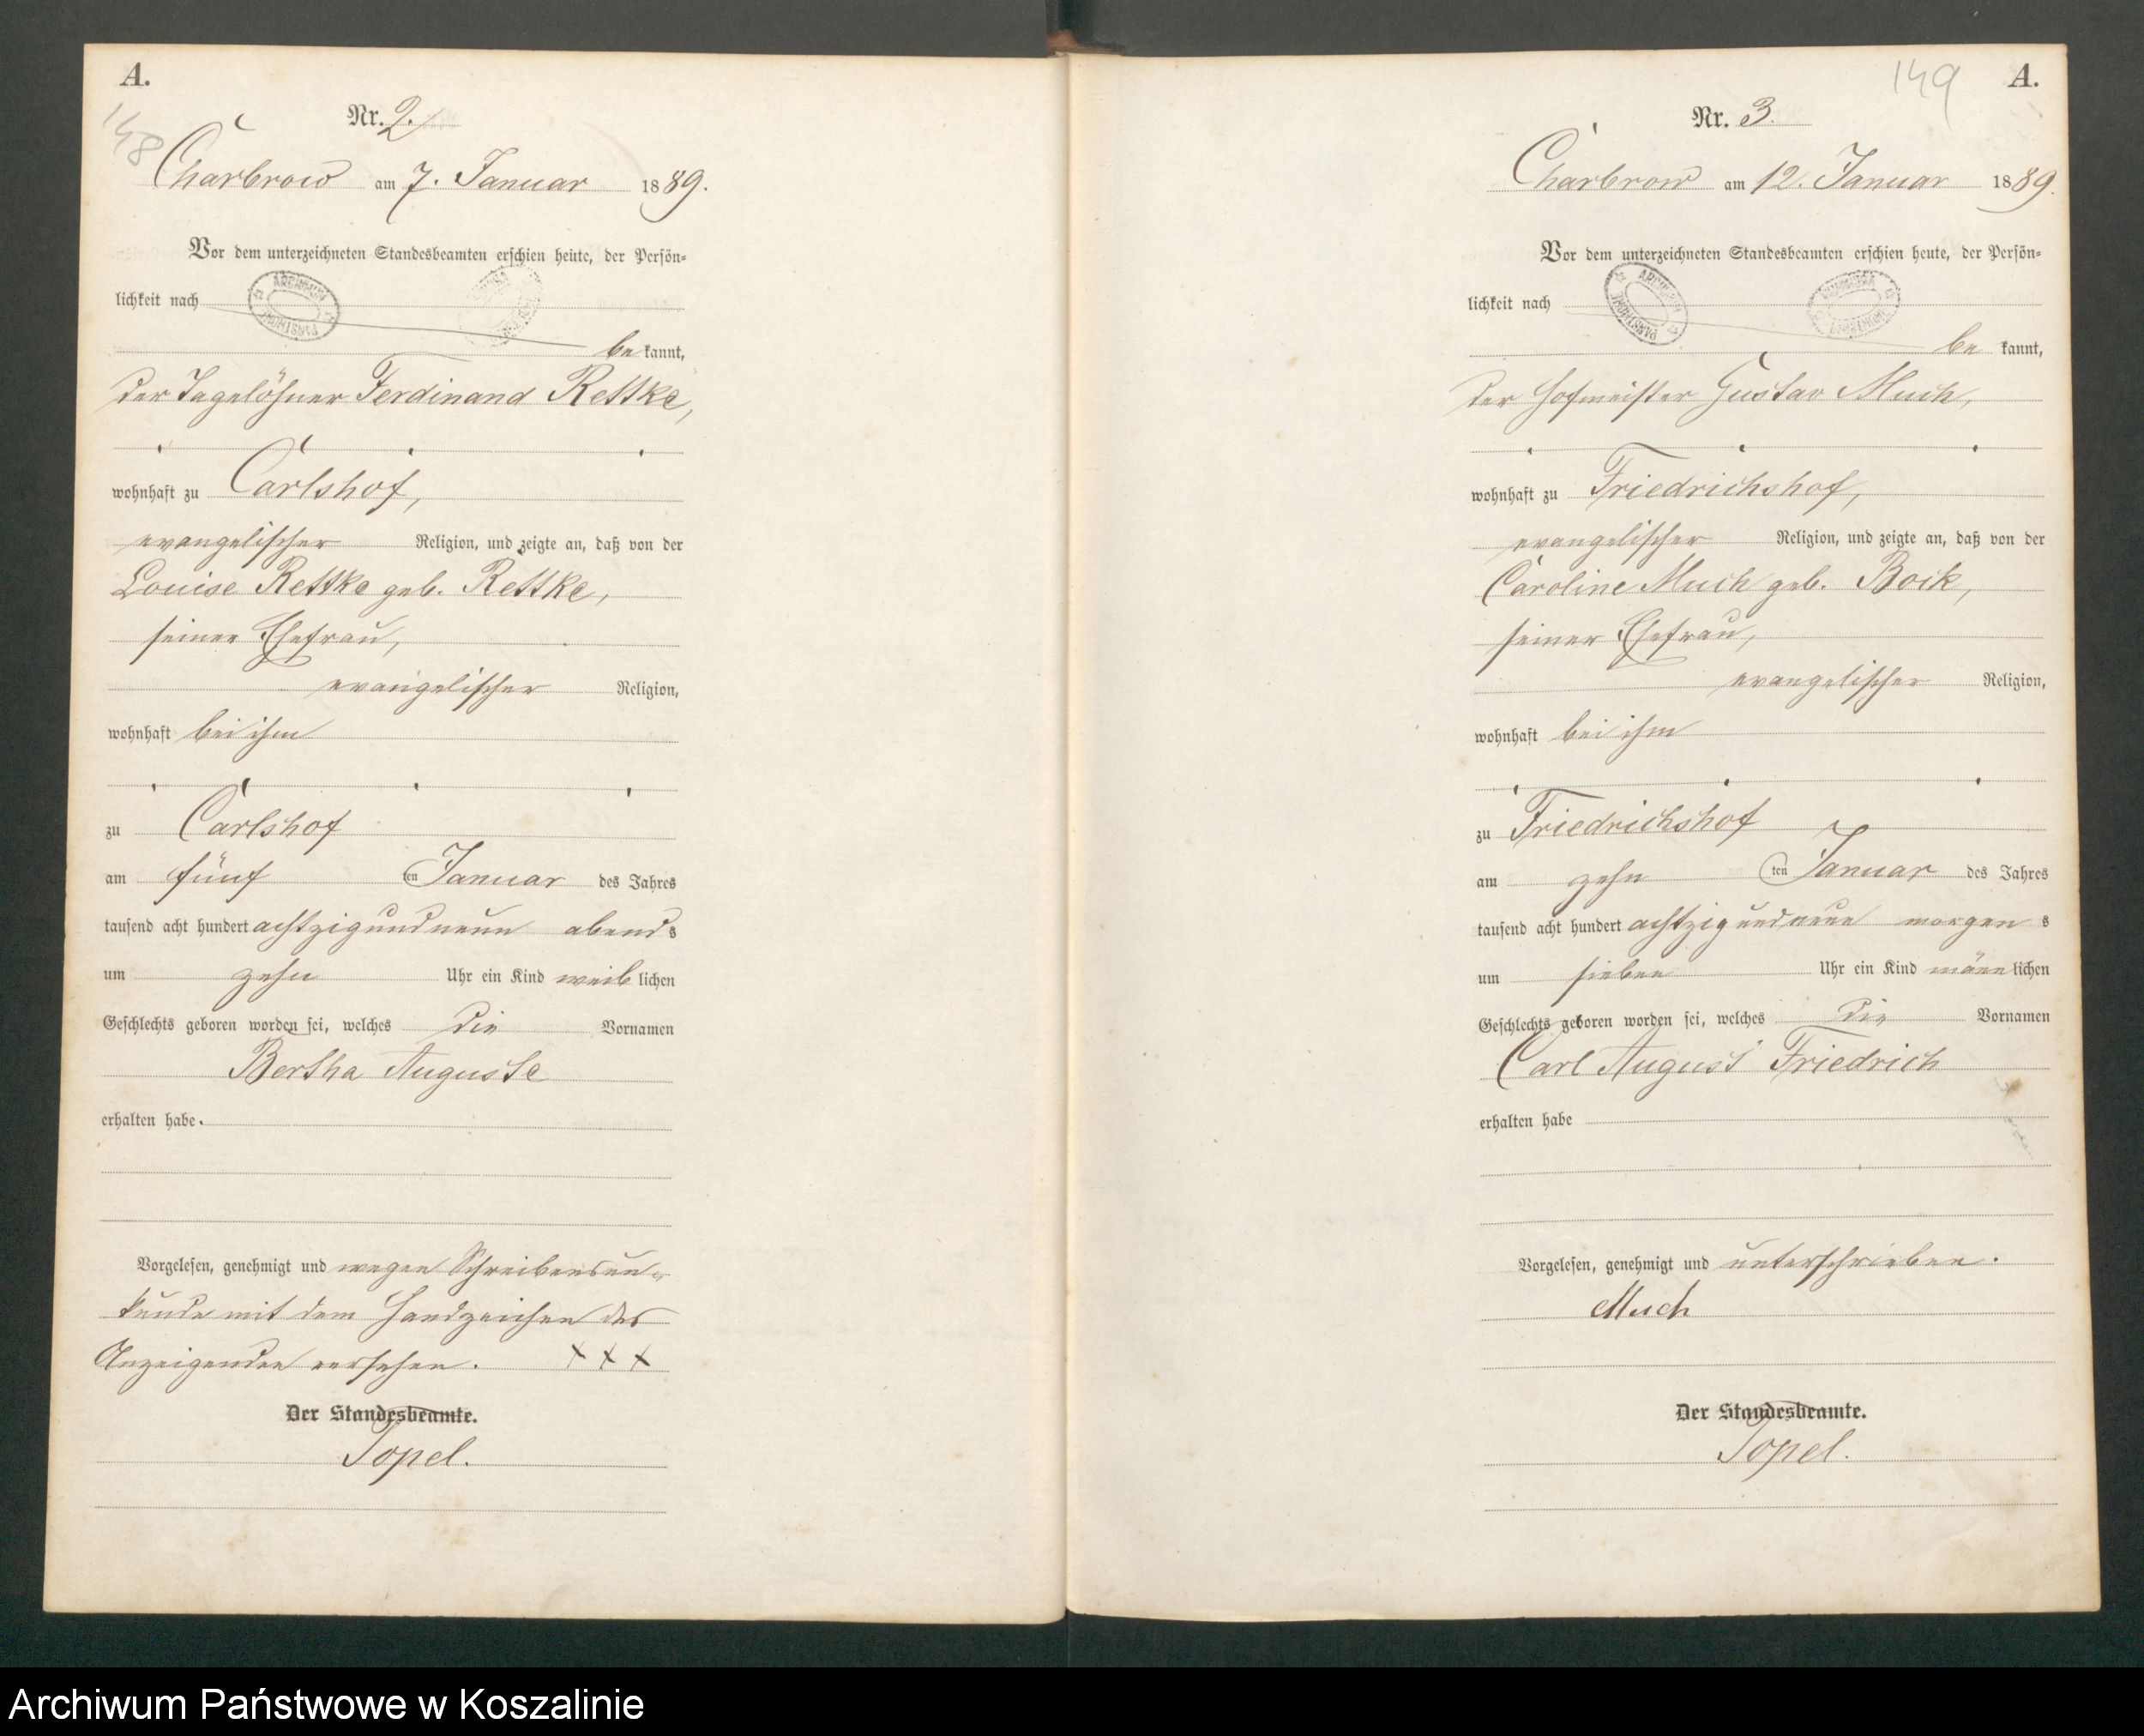 A.
148
Nr. 2.
Charbrow am 7. Januar 1889.
Vor dem unterzeichneten Standesbeamten erschien heute, der Persön-
lichkeit nach
bekannt,
der Tagelöhner Ferdinand Rettke,
wohnhaft zu Carlshof,
evangelischer Religion, und zeigte an, daß von der
Louise Rettke geb. Rettke,
seiner Ehefrau,
evangelischer Religion,
wohnhaft bei ihm
zu Carlshof
am fünf ten Januar des Jahres
tausend acht hundert achtzig und neun abends
um zehn Uhr ein Kind weiblichen
Geschlechts geboren worden sei, welches die Vornamen
Bertha Auguste
erhalten habe.
Vorgelesen, genehmigt und wegen Schreibensun-
kunde mit dem Handzeichen des
Anzeigenden versehen. XXX
Der Standesbeamte.
Topel.
149
A.
Nr. 3.
Charbrow am 12. Januar 1889.
Vor dem unterzeichneten Standesbeamten erschien heute, der Persön-
lichkeit nach
be kannt,
der Hofmeister Gustav Much,
wohnhaft zu Friedrichshof,
evangelischer Religion, und zeigte an, daß von der
Caroline Much geb. Bock,
seiner Ehefrau,
evangelischer Religion,
wohnhaft bei ihm
zu Friedrichshof
am zehn ten Januar des Jahres
tausend acht hundert achtzig und neun morgens
um sieben Uhr ein Kind männlichen
Geschlechts geboren worden sei, welches die Vornamen
Carl August Friedrich
erhalten habe
Vorgelesen, genehmigt und unterschrieben.
Much
Der Standesbeamte.
Topel.
Archiwum Państwowe w Koszalinie